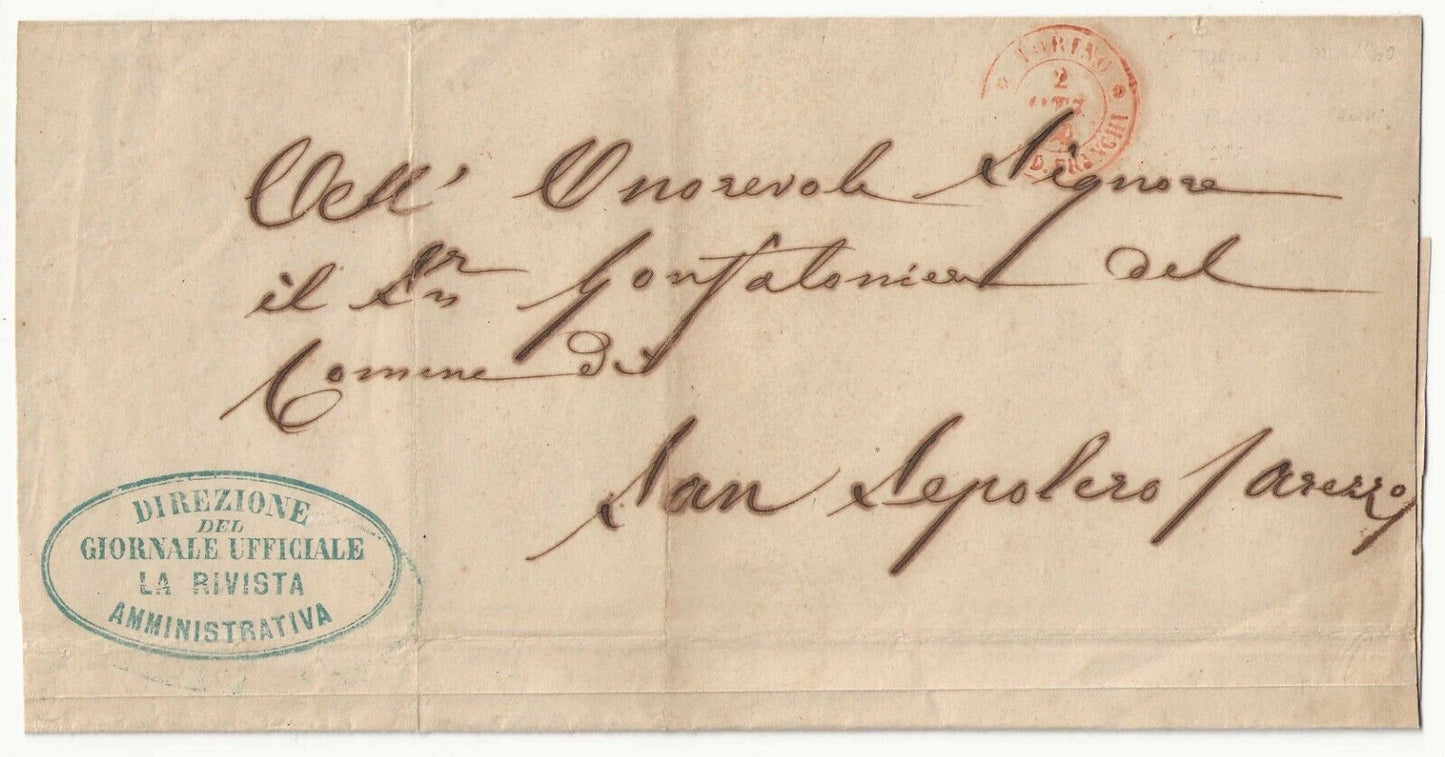 TORINO
2
OTT
D. FRANCHI
Oell' Onorevole Signore
il Sr Gonfaloniere del
Comune di
San Sepolcro / Arezzo
DIREZIONE
DEL
GIORNALE UFFICIALE
LA RIVISTA
AMMINISTRATIVA